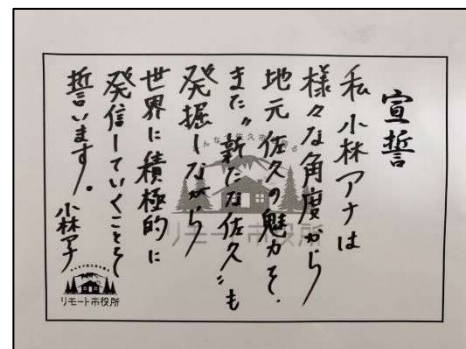 宣誓
私 小林アナは
様々な角度から
地元 佐久の魅力を、
また〝新たな佐久〟も
発掘しながら
世界に積極的に
発信していくことを
誓います。
小林アナ
リモート市役所
リモート市役所